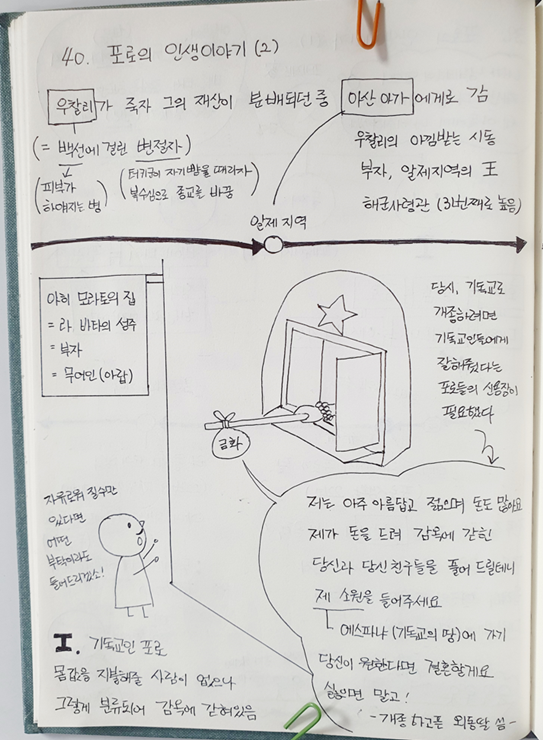 40. 포로의 인생이야기 (2)
우찰리가 죽자 그의 재산이 분배되던 중
아산 아가에게로 감
(= 백선에 걸린 변절자)
(피부가
하얘지는 병)
(터키군이 자기 뺨을 때리자
복수심으로 종교를 바꿈
우찰리의 아낌받는 시동
부자, 알제지역의 王
해군사령관 (3번째로 높음)
알제 지역
아히 모라토의 집
= 라 바타의 성주
= 부자
= 무어인 (아랍)
당시, 기독교로
개종하려면
기독교인들에게
잘해줬다는
포로들의 신용장이
필요했다
금화
자유로워 질수만
있다면
어떤
부탁이라도
들어드리겠소!
저는 아주 아름답고 젊으며 돈도 많아요
제가 돈을 드려 감옥에 갇힌
당신과 당신친구들을 풀어 드릴테니
제 소원을 들어주세요
에스파냐 (기독교의 땅)에 가기
당신이 원한다면 결혼할게요
싫으면 말고!
- 개종 하고픈 외동딸 씀 -
I. 기독교인 포로
몸값을 지불해줄 사람이 없으나
그렇게 분류되어 감옥에 갇혀있음